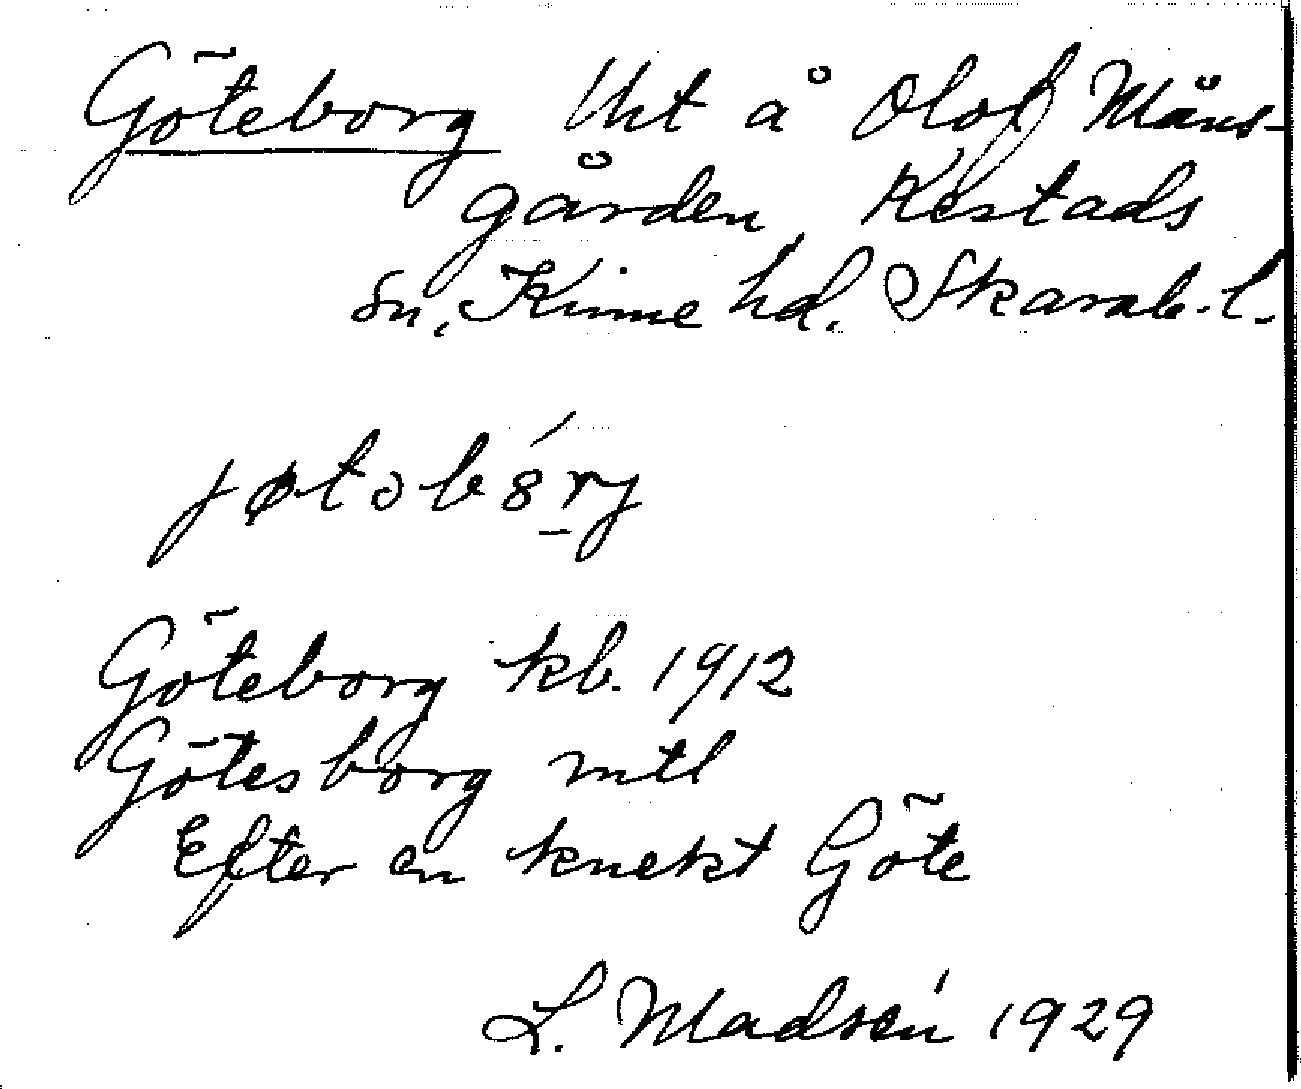 Göteborg Uht å Olof Måns-
gården, Kestads
sn, Kinne hd. Skarab. l.
jøtəbȣ́rj
Göteborg kb. 1912
Götesborg mtl
Efter en knekt Göte
L. Madsén 1929